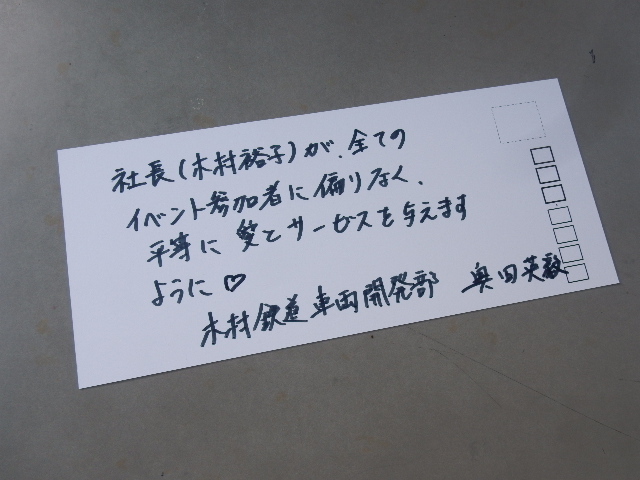 社長(木村裕子)が、全ての
イベント参加者に偏りなく、
平等に愛とサービスを与えます
ように♡
木村鉄道車両開発部 奥田英毅